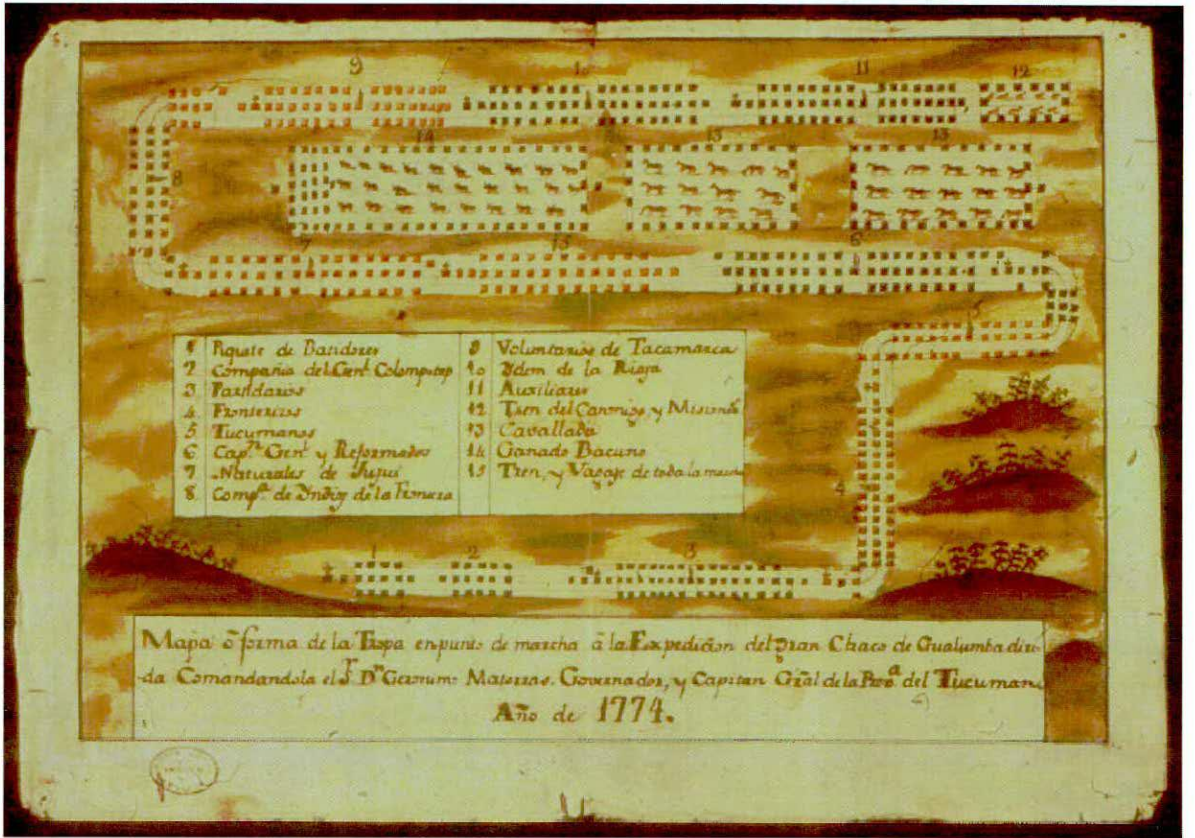 9 10 11 12
14 13 13
8
7 15 6
5
1 Piquete de Batidores
2 Compañia del Gen.l Colompotop
3 Partidarios
4 Fronterizos
5 Tucumanos
6 Cap.n Gen.l y Reformados
7 Naturales de Jujui
8 Comp.a de Yndios de la Frontera
9 Voluntarios de Catamarca
10 Ydem de la Rioja
11 Auxiliares
12 Tren del Canonigo, y Mision.s
13 Cavallada
14 Ganado Bacuno
15 Tren, y Vagaje de toda la marcha
4
1 2 3
Mapa ō forma de la Tropa en punto de marcha â la Expedicion del gran Chaco de Gualamba
da Comandandola el S.r D.n Geronimo Matorras, Governador, y Capitan Gr̃al de la Prov.a del Tucuman
Año de 1774.